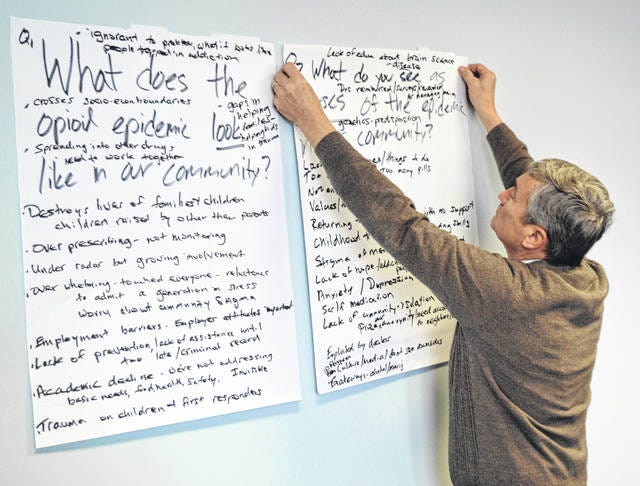 Q1
ignorant to problem, what it looks like
people trapped in addiction
What does the
crosses socio-econ boundaries
gaps in
helping
families-
helping kids
in trauma
opioid epidemic look
Spreading into other drugs,
need to work together
like in our community?
Destroys lives of families + children
children raised by other than parents
Over prescribing - not monitoring
Under radar but growing involvement
Over whelming - touched everyone - reluctance
to admit a generation in stress
worry about community stigma
Employment barriers. Employer attitudes important
Lack of prevention, lack of assistance until
too late/criminal record
Academic decline - We're not addressing
basic needs, food, health, safety. Invisible
Trauma on children + first responders
Lack of educ about brain science
- disease
What do you see as
Drs reimbursed/surveys
managing pain
of the epidemic
genetics - predisposition
community?
things to do
Too many pills
Not
Values
Returning
with no support
Childhood
family
Stigma of
Lack of hope/
Anxiety/Depression
Self medication
Lack of community -> isolation
to neighbors
Exploited by dealer
Culture/media/don't see
Gateways -